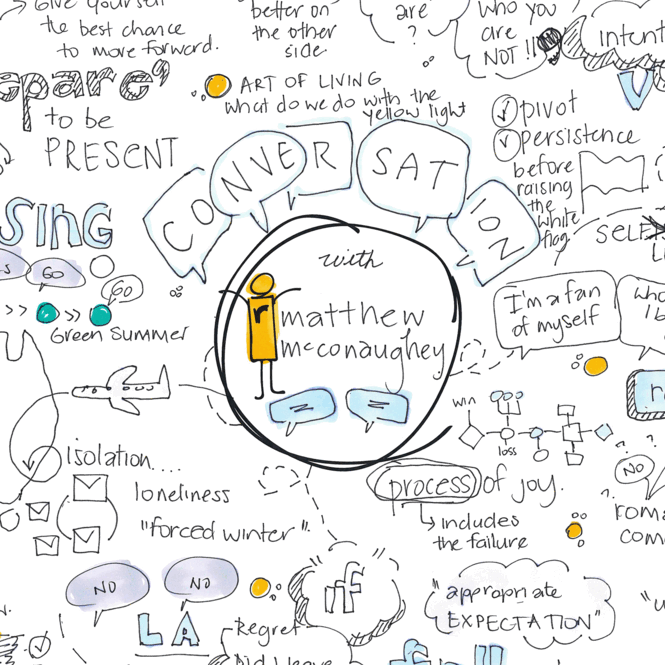 GIVE YOURSELF
the best chance
to move forward.
better on
the other
side.
are
?
WHO YOU
are
NOT!!
intent
epare'
to be
PRESENT
ART OF LIVING
what do we do with the
yellow light
pivot
persistence
before
raising
the
white
flag.
CONVERSATION
SING
GO
GO
Green Summer
with
r
matthew
mcconaughey
I'm a fan
of myself
isolation....
loneliness
"forced winter".
win
loss
process of joy.
includes
the failure
? ?
NO
?
NO
NO
LA
riff
Regret
Did I leave
"appropriate
EXPECTATION"